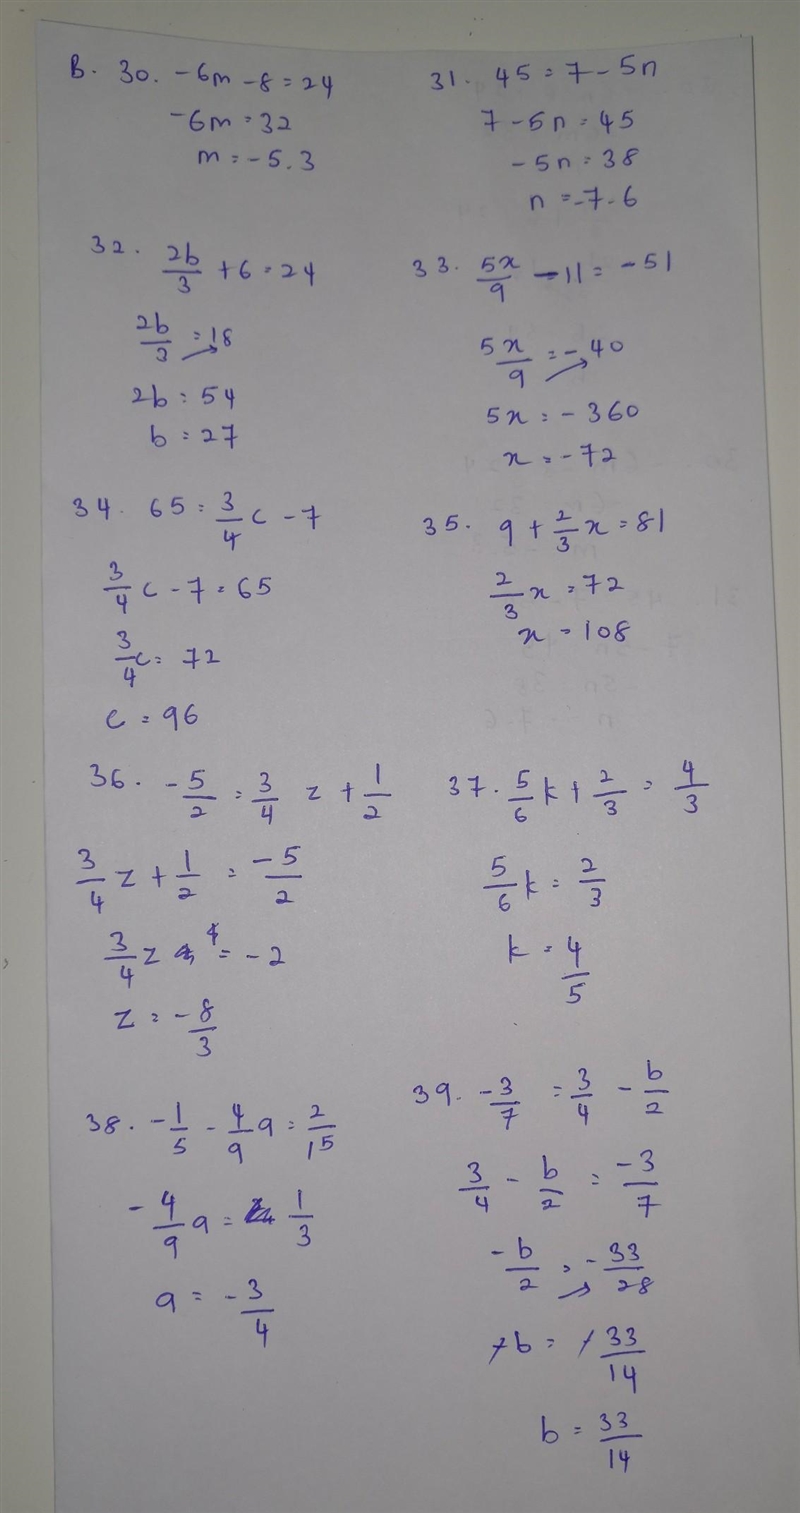 B. 30. -6m - 8 = 24
-6m = 32
m = -5.3
31. 45 = 7 - 5n
7 - 5n = 45
-5n = 38
n = -7.6
32. 2b/3 + 6 = 24
2b/3 = 18
2b = 54
b = 27
33. 5x/9 - 11 = -51
5x/9 = -40
5x = -360
x = -72
34. 65 = 3/4 c - 7
3/4 c - 7 = 65
3/4 c = 72
c = 96
35. 9 + 2/3 x = 81
2/3 x = 72
x = 108
36. -5/2 = 3/4 z + 1/2
3/4 z + 1/2 = -5/2
3/4 z = -2
z = -8/3
37. 5/6 k + 2/3 = 4/3
5/6 k = 2/3
k = 4/5
38. -1/5 - 4/9 a = 2/15
-4/9 a = 1/3
a = -3/4
39. -3/7 = 3/4 - b/2
3/4 - b/2 = -3/7
-b/2 = -33/28
-b = -33/14
b = 33/14